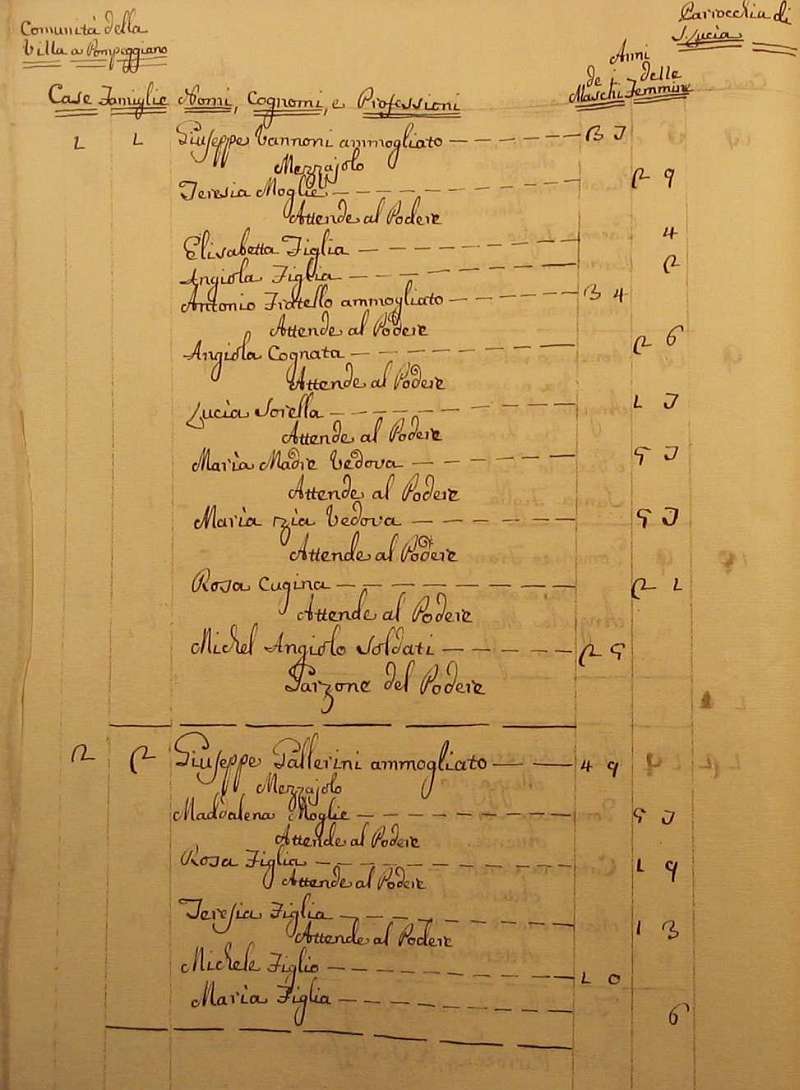 Comunità della
Villa a Pompeggiano
Parrocchia di
S. Lucia
Anni
de delle
Case Famiglie Nomi, Cognomi, e Professioni Maschi Femmine
1 1 Giuseppe Vannoni ammogliato 37
Mezzajolo
Teresia Moglie 29
Attende al Podere
Elisabetta Figlia 4
Angiola Figlia 2
Antonio Fratello ammogliato 34
Attende al Podere
Angiola Cognata 26
Attende al Podere
Lucia Sorella 17
Attende al Podere
Maria Madre Vedova 57
Attende al Podere
Maria Zia Vedova 57
Attende al Podere
Rosa Cugina 21
Attende al Podere
Michel Angiolo Soldati 25
Garzone del Podere
2 2 Giuseppe Gallerini ammogliato 49
Mezzajolo
Maddalena Moglie 57
Attende al Podere
Rosa Figlia 19
Attende al Podere
Teresia Figlia 13
Attende al Podere
Michele Figlio 10
Maria Figlia 6